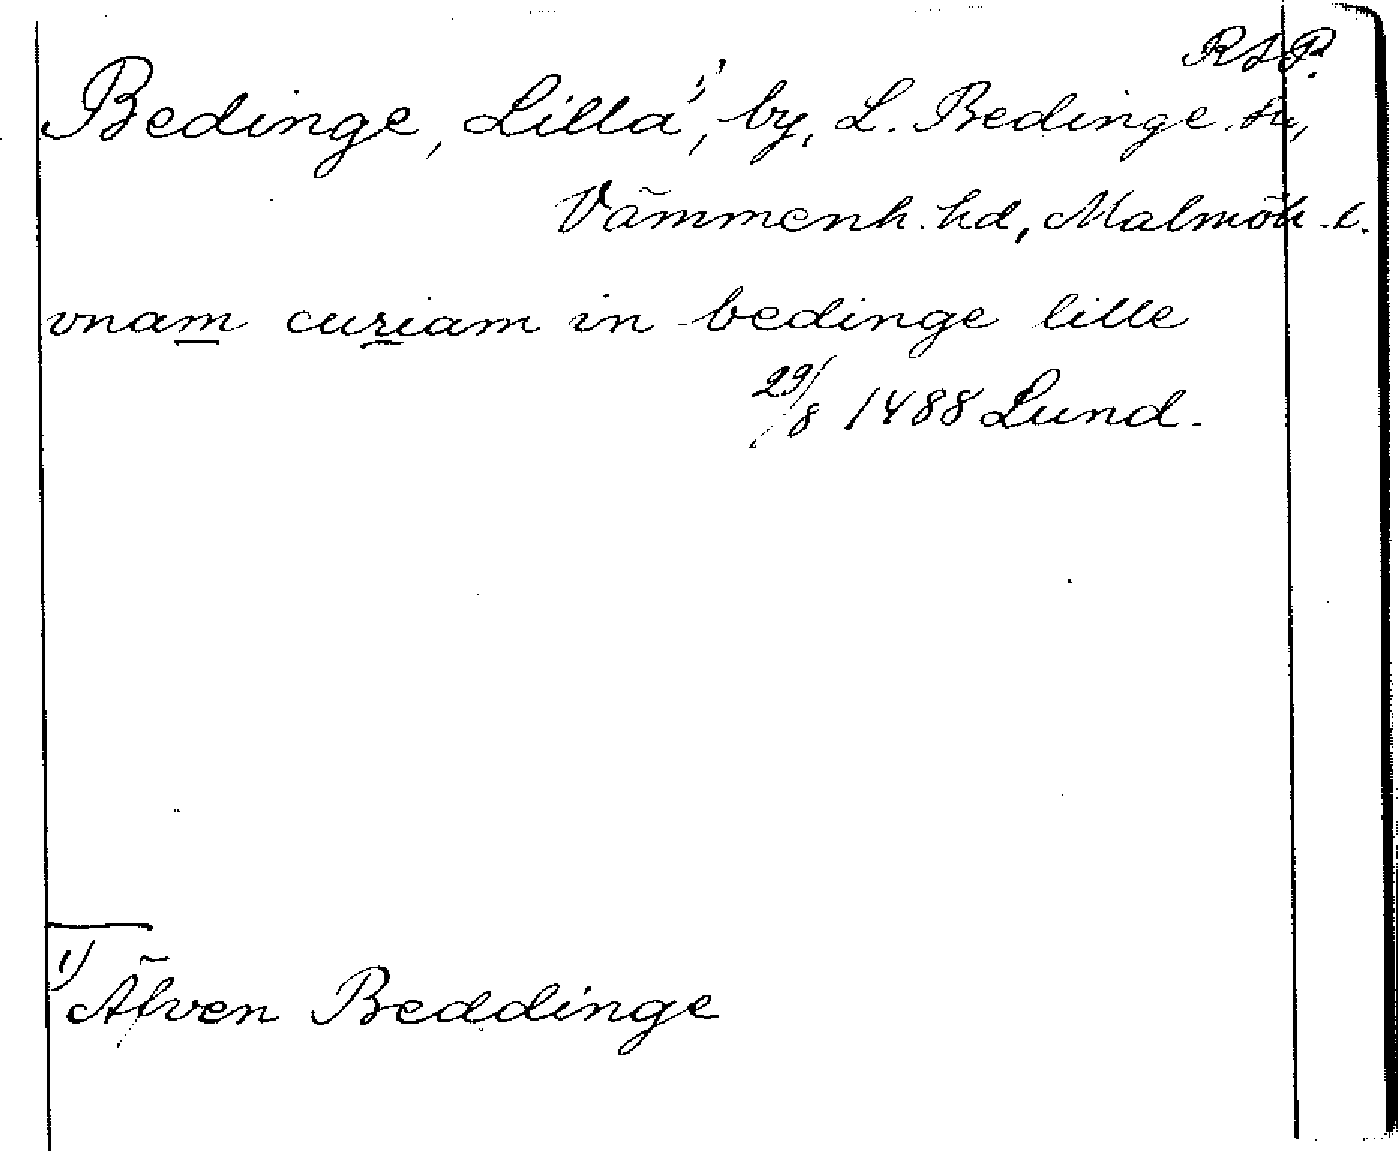 RLP.
Bedinge, Lilla ¹⁾, by, L. Bedinge sn,
Vämmenh. hd, Malmöh. l.
vnam curiam in bedinge lille
29/8 1488 Lund.
¹⁾ Äfven Beddinge